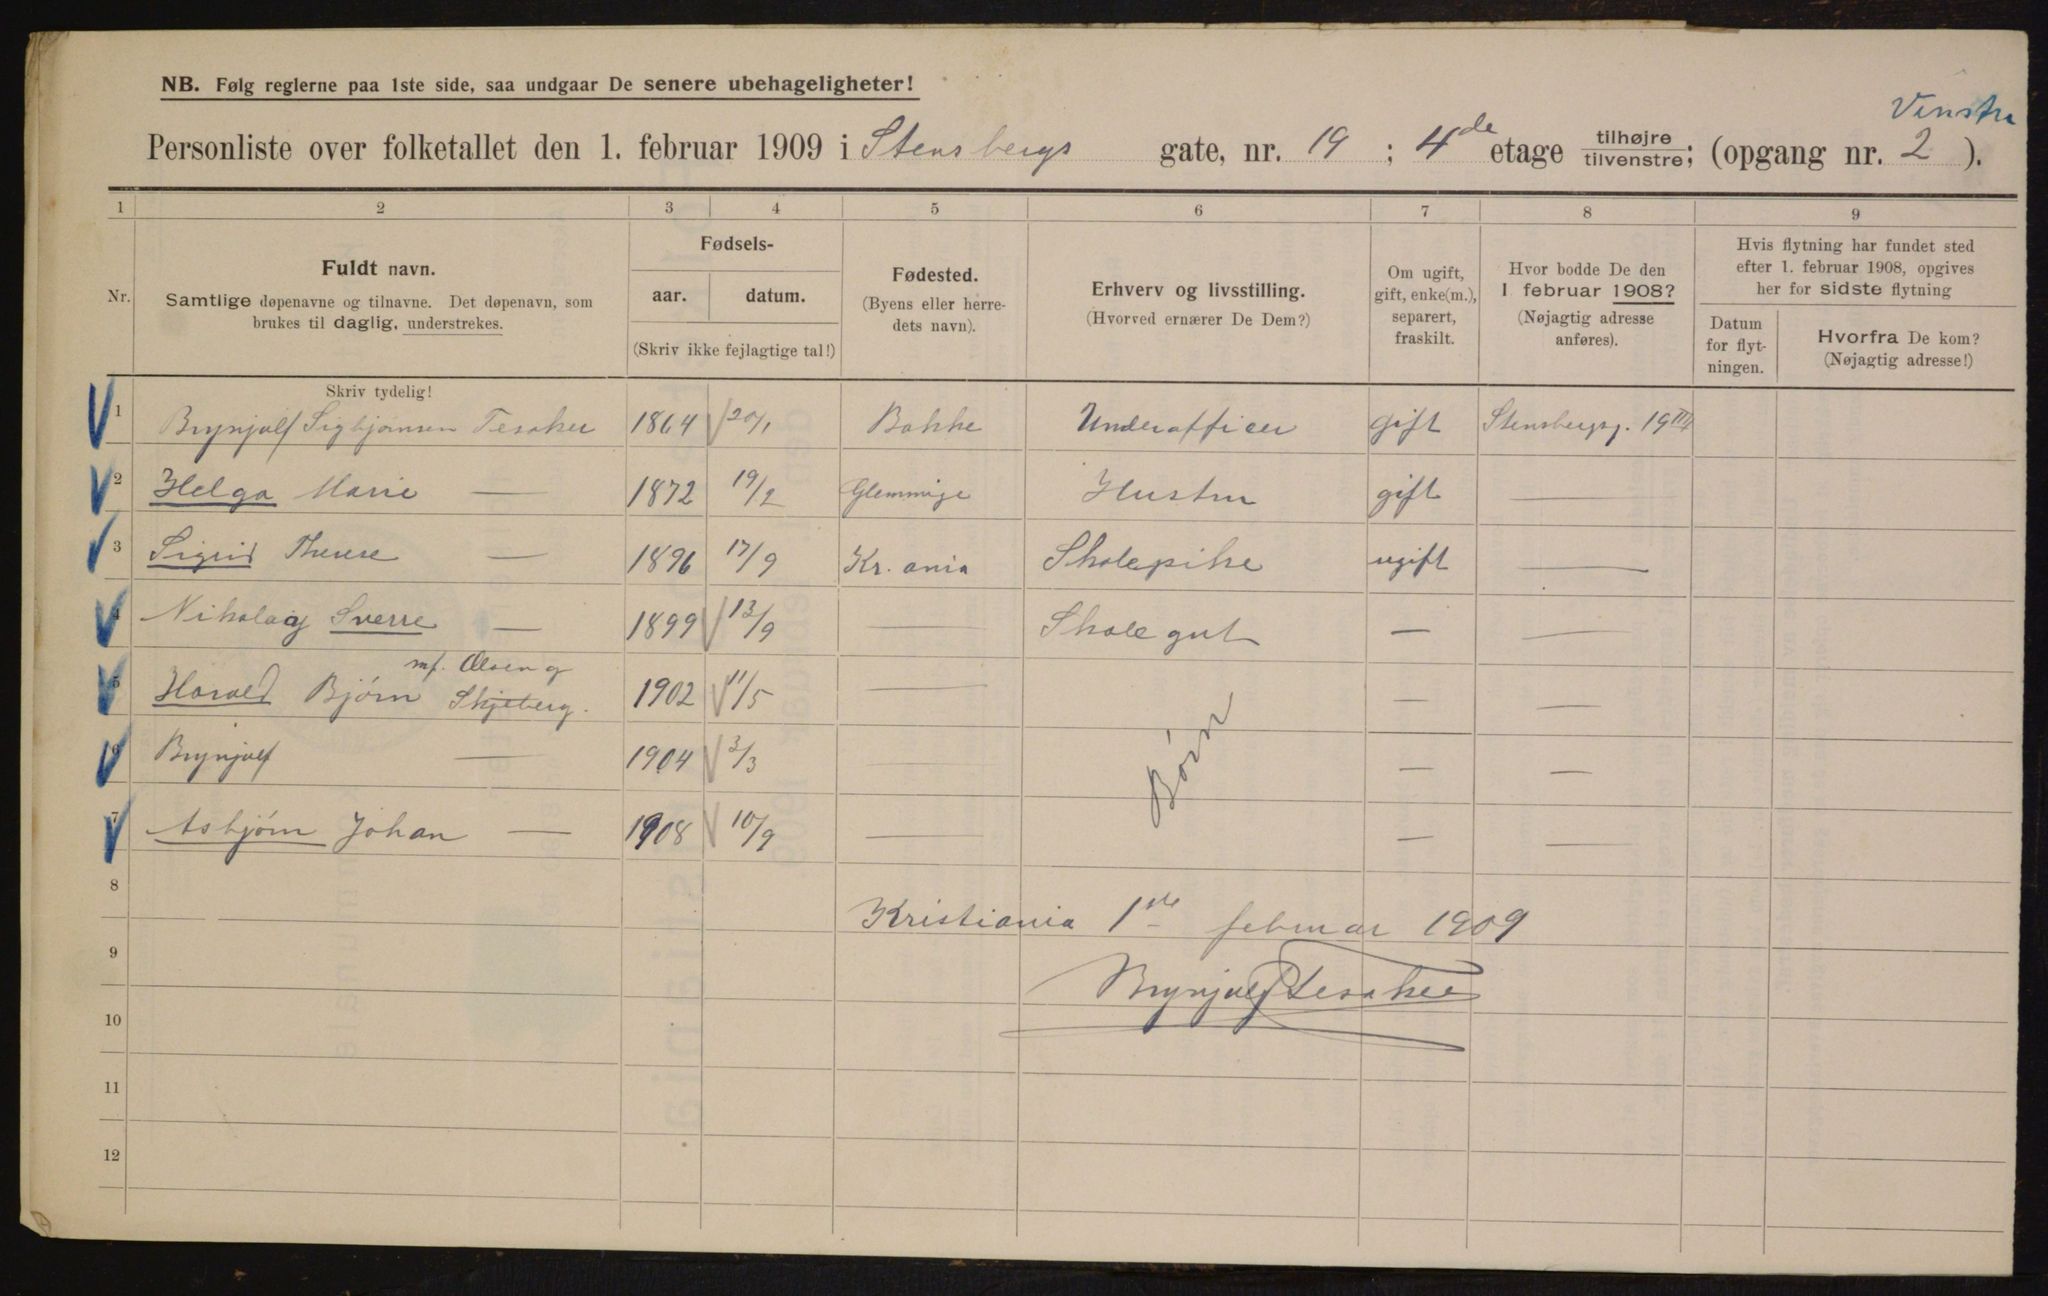 NB. Følg reglerne paa 1ste side, saa undgaar De senere ubehageligheter!
Vinstre
Personliste over folketallet den 1. februar 1909 i Stensbergs gate, nr. 19 ; 4de etage tilhøjre tilvenstre; (opgang nr. 2 ).
1 2 3 4 5 6 7 8 9
Nr.
Fuldt navn.
Samtlige døpenavne og tilnavne. Det døpenavn, som
brukes til daglig, understrekes.
Fødsels-
aar. datum.
(Skriv ikke fejlagtige tal!)
Fødested.
(Byens eller herre-
dets navn).
Erhverv og livsstilling.
(Hvorved ernærer De Dem?)
Om ugift,
gift, enke(m.),
separert,
fraskilt.
Hvor bodde De den
1 februar 1908?
(Nøjagtig adresse
anføres).
Hvis flytning har fundet sted
efter 1. februar 1908, opgives
her for sidste flytning
Datum
for flyt-
ningen.
Hvorfra De kom?
(Nøjagtig adresse!)
Skriv tydelig!
1 Brynjulf Sigbjørnsen Tesaker 1864 20/1 Bakke Underofficer gift Stensbergsg. 19 III
2 Helga Marie — 1872 19/2 Glemminge Hustru gift —
3 Sigrid Therese — 1896 17/9 Kr.ania Skolepike ugift —
4 Nikolay Sverre — 1899 13/9 — Skolegut — —
mf. Olsen og
5 Harald Bjørn Skjeberg. 1902 11/5 — — —
6 Brynjulf — 1904 3/3 — Børn — —
7 Asbjørn Johan — 1908 10/9 — — —
8
Kristiania 1ste februar 1909
9
Brynjulf Tesaker
10
11
12